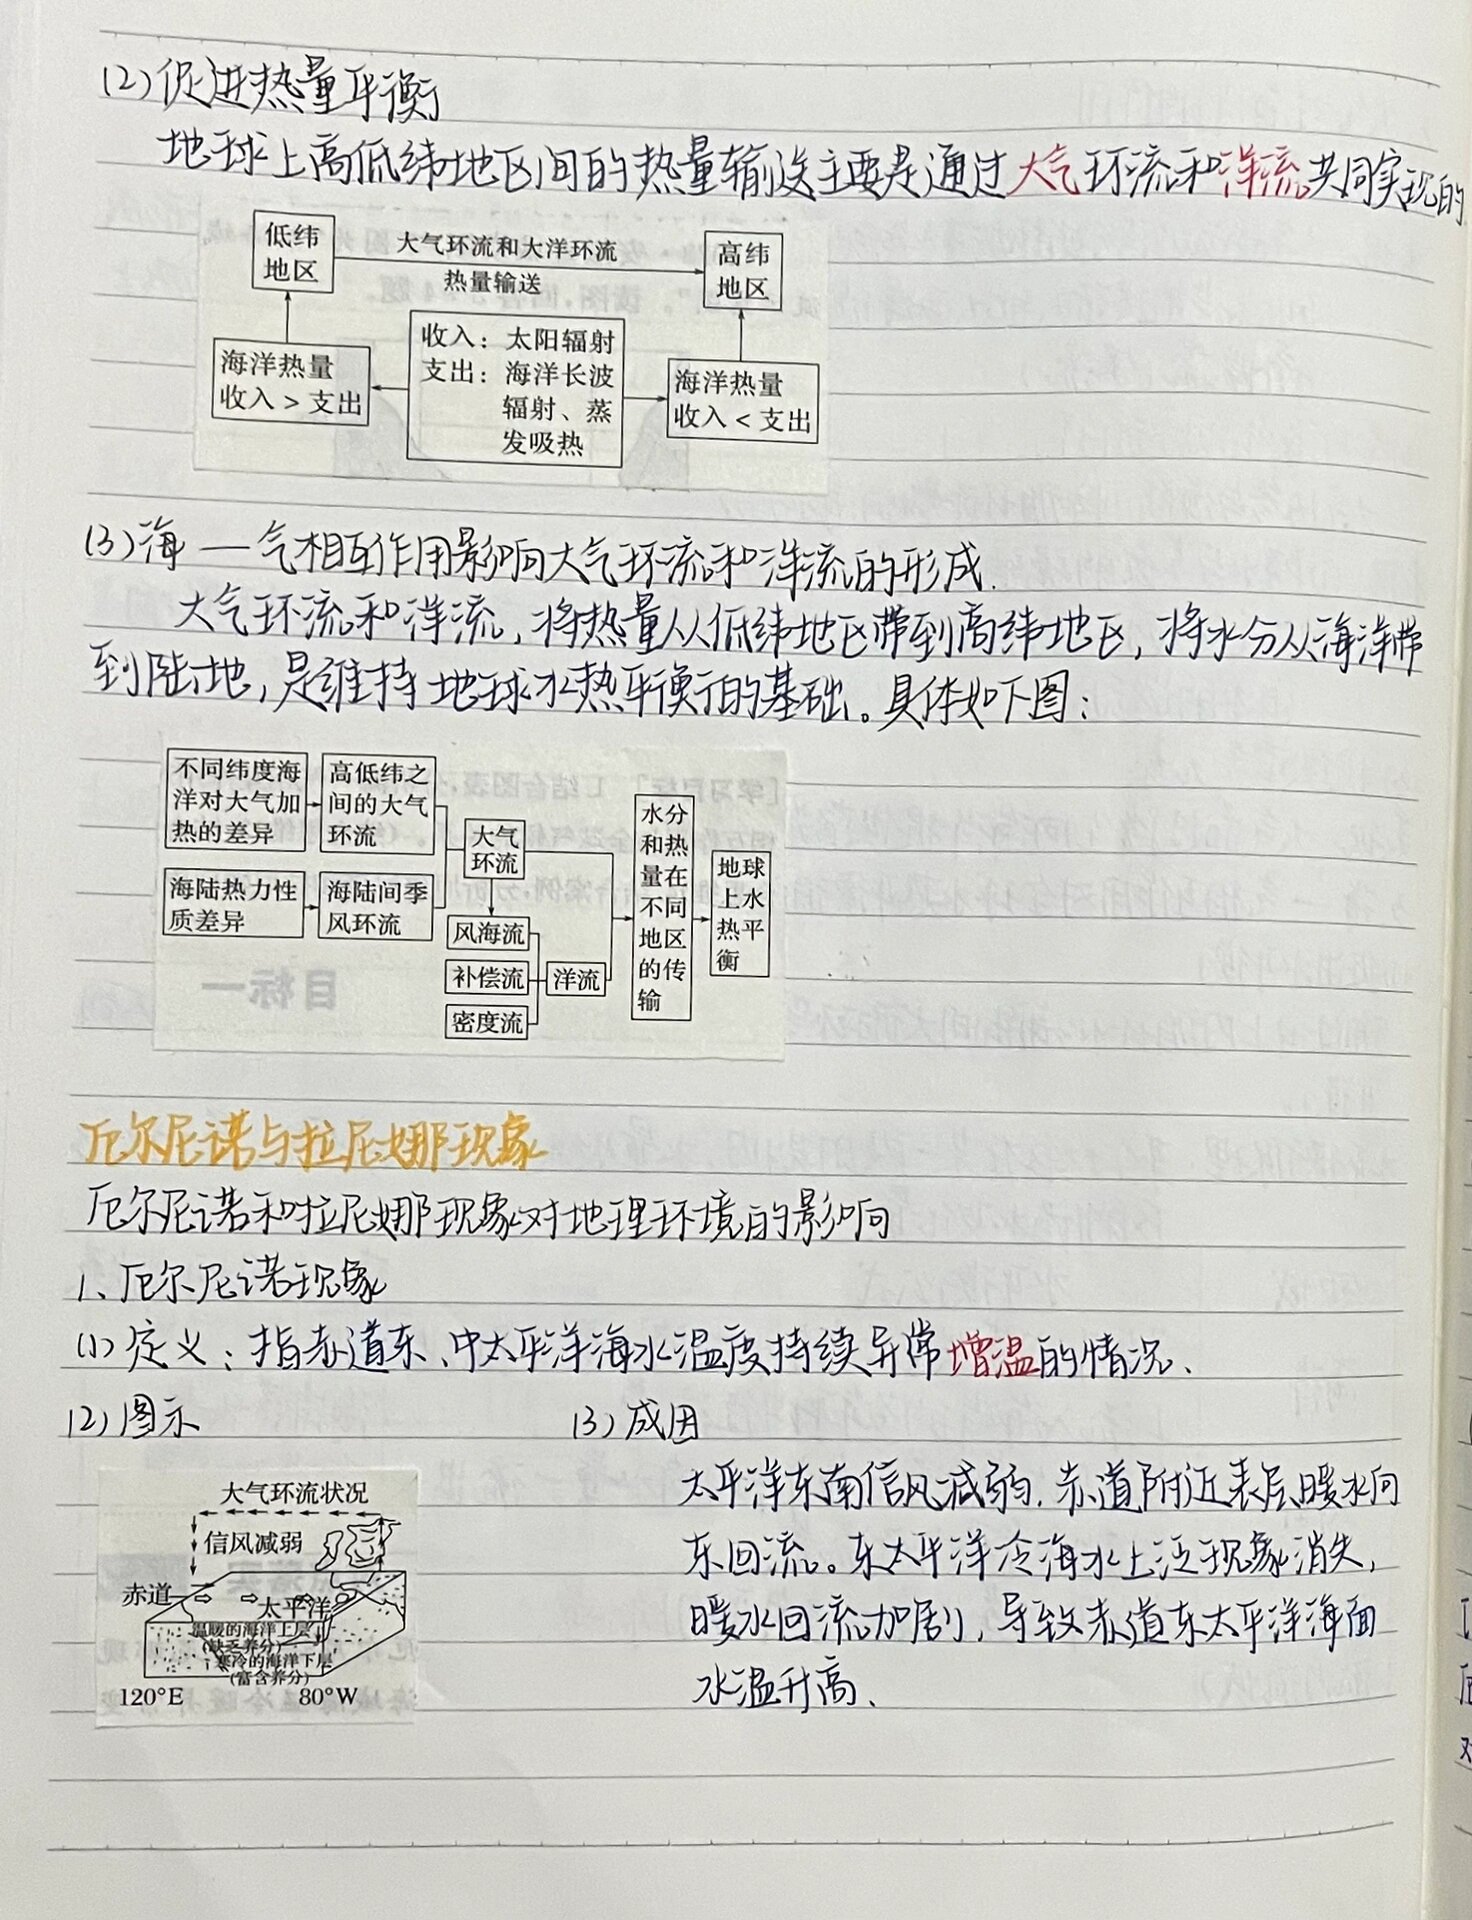 (2)促进热量平衡
地球上高低纬地区间的热量输送主要是通过大气环流和洋流共同实现的
低纬
地区
大气环流和大洋环流
热量输送
高纬
地区
海洋热量
收入>支出
收入:太阳辐射
支出:海洋长波
辐射、蒸
发吸热
海洋热量
收入<支出
(3)海—气相互作用影响大气环流和洋流的形成.
大气环流和洋流,将热量从低纬地区带到高纬地区,将水分从海洋带
到陆地,是维持地球水热平衡的基础。具体如下图:
不同纬度海
洋对大气加
热的差异
高低纬之
间的大气
环流
海陆热力性
质差异
海陆间季
风环流
大气
环流
风海流
补偿流
密度流
洋流
水分
和热
量在
不同
地区
的传
输
地球
上水
热平
衡
厄尔尼诺与拉尼娜现象
厄尔尼诺和拉尼娜现象对地理环境的影响
1、厄尔尼诺现象
(1)定义:指赤道东、中太平洋海水温度持续异常增温的情况、
(2)图示
大气环流状况
信风减弱
赤道
太平洋
温暖的海洋上层
(缺乏养分)
寒冷的海洋下层
(富含养分)
120°E
80°W
(3)成因
太平洋东南信风减弱.赤道附近表层暖水向
东回流。东太平洋冷海水上泛现象消失,
暖水回流加剧,导致赤道东太平洋海面
水温升高、